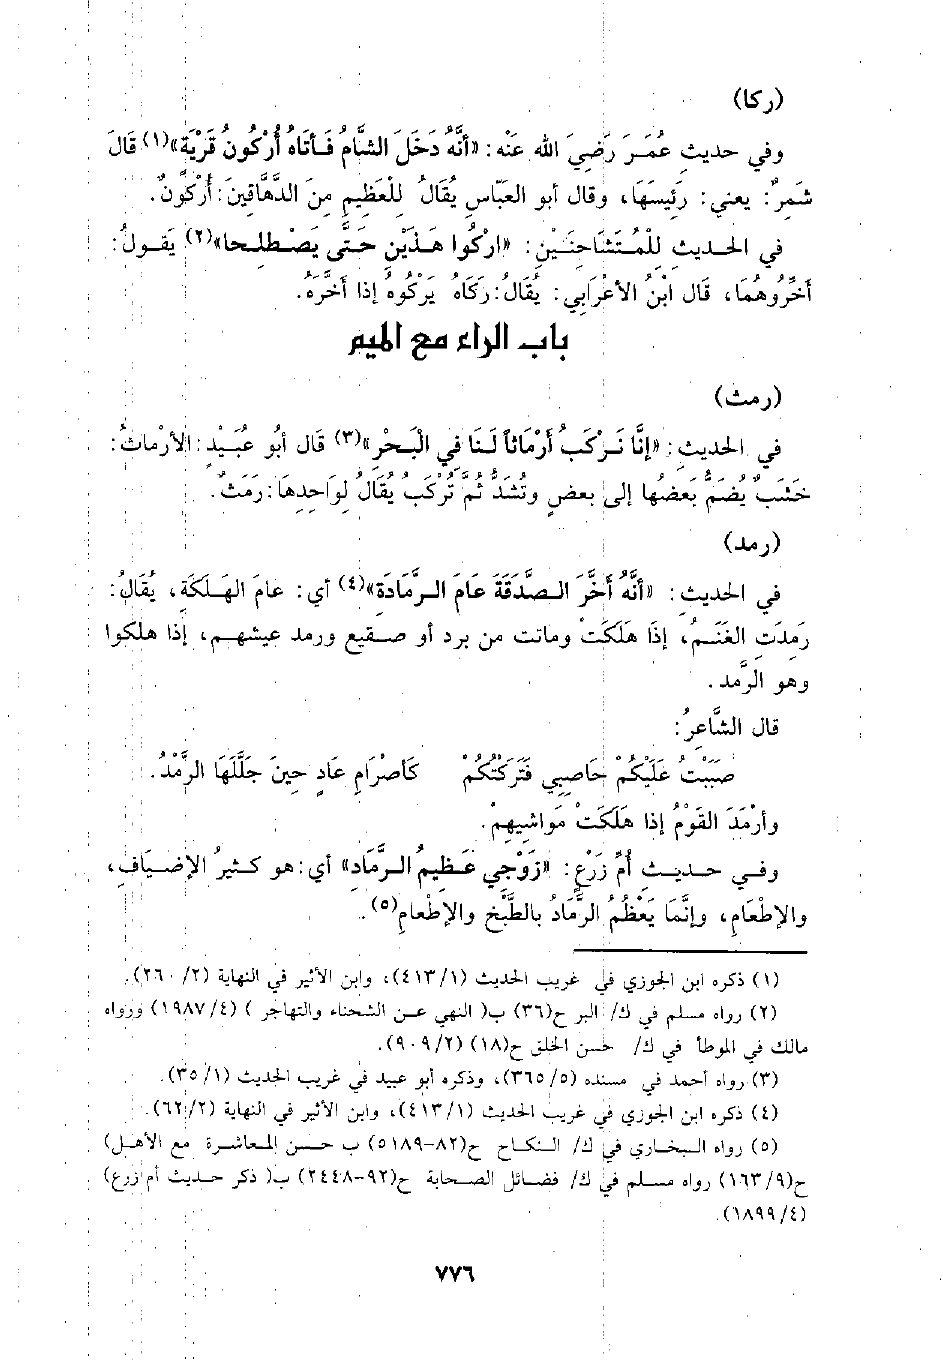 (ركا)
وفي حديثِ عُمَرَ رَضِيَ الله عَنْه: «أنَّهُ دَخَلَ الشَّامُ فَأتَاهُ أُرْكُونُ قَرْيَةٍ»(١) قَالَ
شَمِرٌ: يعني: رَئِيسَهَا، وقال أبو العَبَّاسِ يُقَالُ لِلْعَظِيمِ مِنَ الدَّهَاقِينَ: أُرْكُونٌ.
في الحديثِ لِلْمُتَشَاحِنَيْنِ: «ارْكُوا هَذَيْنِ حَتَّى يَصْطَلِحا»(٢) يَقولُ:
أخِّرُوهُمَا، قَال ابْنُ الأعْرَابِي: يُقَالُ: رَكَاهُ يَرْكُوهُ إذا أخَّرَهُ.
باب الراء مع الميم
(رمث)
في الحديثِ: «إنَّا نَرْكَبُ أرْمَاثاً لَنَا فِي الْبَحْرِ»(٣) قَال أبُو عُبَيْدٍ: الأرْماثُ:
خَشَبٌ يُضَمُّ بَعضُها إلى بعضٍ وتُشَدُّ ثُمَّ تُرْكَبُ يُقَالُ لِوَاحِدِهَا: رَمَثٌ.
(رمد)
في الحديث: «أنَّهُ أخَّرَ الصَّدَقَةَ عَامَ الرَّمَادَةِ»(٤) أي: عامَ الهَلَكَةِ، يُقَالُ:
رَمِدَتِ الغَنَمُ، إذَا هَلَكَتْ وماتت من برد أو صقيع ورمد عيشهم، إذا هلكوا
وهو الرَّمد.
قال الشَّاعِرُ:
صَبَبْتُ عَلَيْكُمْ حَاصِبِي فَتَرَكْتُكُمْ كَأصْرَامِ عَادٍ حِينَ جَلَّلَهَا الرَّمْدُ.
وأرْمَدَ القَوْمُ إذا هَلَكَتْ مَواشِيهِمْ.
وفي حديثِ أمِّ زَرْعٍ: «زَوْجِي عَظِيمُ الرَّمَادِ» أي: هو كَثيرُ الإضيَافِ،
والإطْعَامِ، وإنَّمَا يَعْظُمُ الرَّمَادُ بالطَّبْخِ والإطْعامِ(٥).
(١) ذكره ابن الجوزي في غريب الحديث (٤١٣/١)، وابن الأثير في النهاية (٢٦٠/٢).
(٢) رواه مسلم في ك/ البر ح(٣٦) ب( النهي عن الشحناء والتهاجر ) (١٩٨٧/٤) ورواه
مالك في الموطأ في ك/ حسن الخلق ح(١٨) (٩٠٩/٢).
(٣) رواه أحمد في مسنده (٣٦٥/٥)، وذكره أبو عبيد في غريب الحديث (٣٥/١).
(٤) ذكره ابن الجوزي في غريب الحديث (٤١٣/١)، وابن الأثير في النهاية (٦٢/٢).
(٥) رواه البخاري في ك/ النكاح ح(٨٢-٥١٨٩) ب حسن المعاشرة مع الأهل)
ح(١٦٣/٩) رواه مسلم في ك/ فضائل الصحابة ح(٩٢-٢٤٤٨) ب( ذكر حديث أم زرع)
(١٨٩٩/٤).
٧٧٦